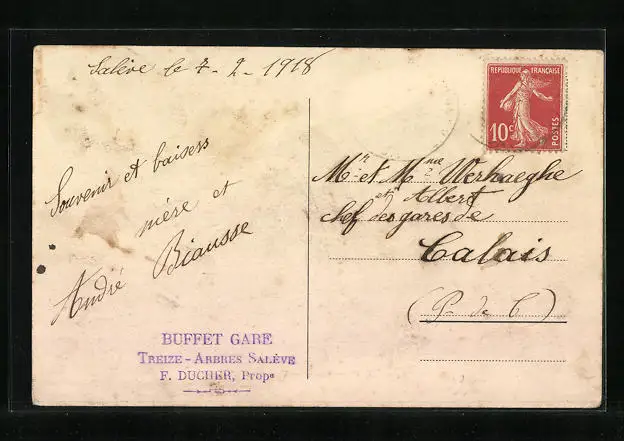 Salève le 7-2-1918
Souvenir et baisers
mère et
André Biausse
BUFFET GARE
TREIZE-ARBRES SALÈVE
F. DUCHER, Propre
REPUBLIQUE FRANÇAISE
10c
POSTES
Mr et Mme Werhaeghe
et Albert
chef des gares de
Calais
(P. de C)